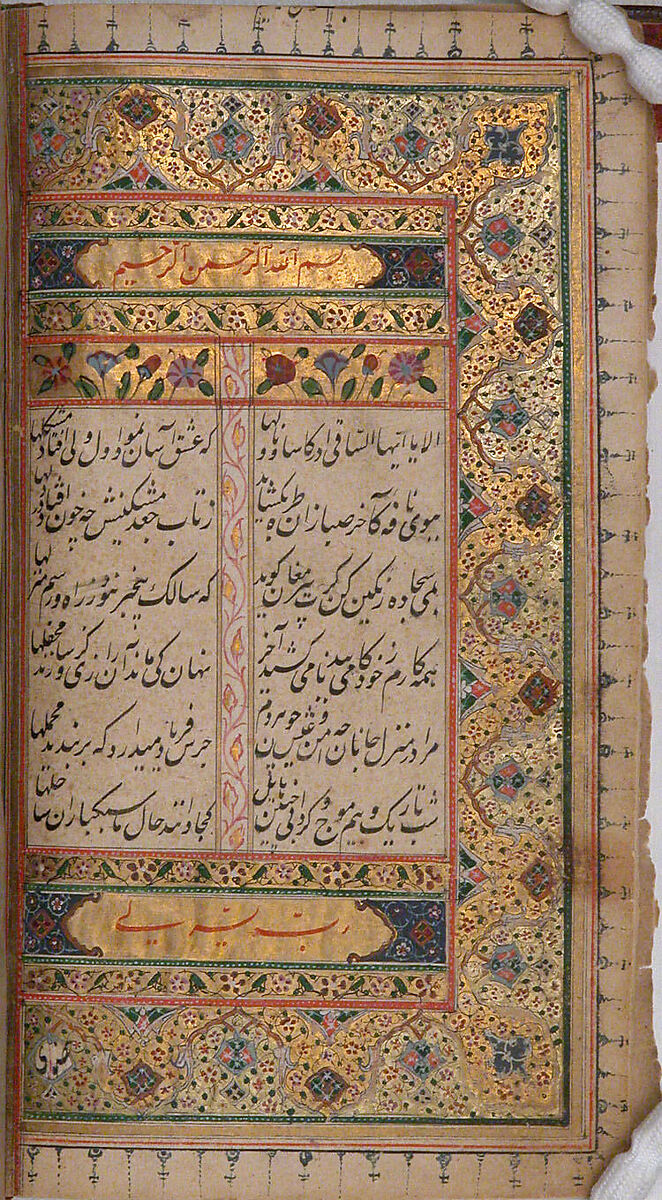 بسم الله الرحمن الرحیم
الا یا ایها الساقی ادر کاسا و ناولها که عشق آسان نمود اول ولی افتاد مشکلها
ببوی نافه کآخر صبا زان طره بکشاید ز تاب جعد مشکینش چه خون افتاد در دلها
بمی سجاده رنگین کن گرت پیر مغان گوید که سالک بیخبر نبود ز راه و رسم منزلها
همه کارم ز خود کامی ببدنامی کشید آخر نهان کی ماند آن رازی کزو سازند محفلها
مرا در منزل جانان چه امن و عیش چون هردم جرس فریاد میدارد که بربندید محملها
شب تاریک و بیم موج و گردابی چنین هایل کجا دانند حال ما سبکباران ساحلها
رب یسر لی